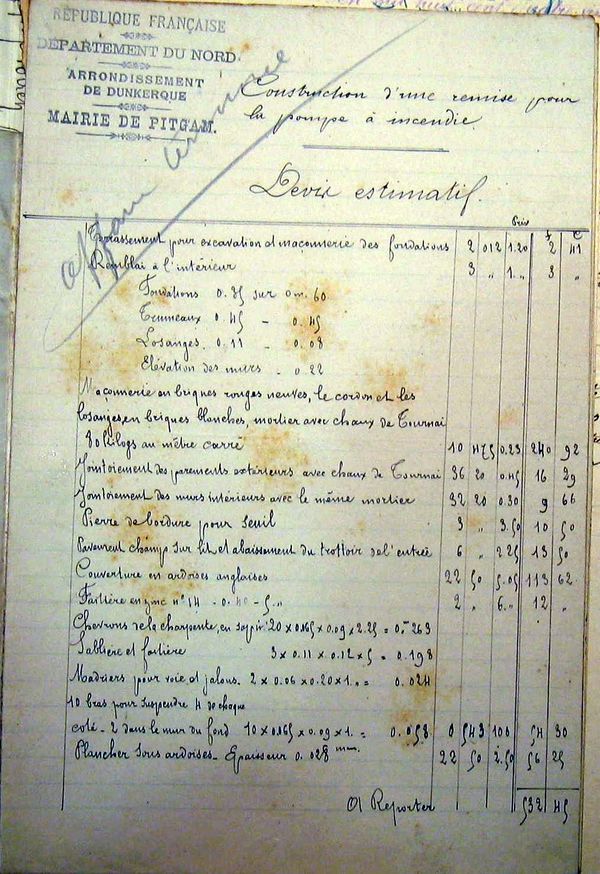 RÉPUBLIQUE FRANÇAISE
DÉPARTEMENT DU NORD
ARRONDISSEMENT
DE DUNKERQUE
MAIRIE DE PITGAM.
affaire terminée
Construction d'une remise pour
la pompe à incendie.
Devis estimatif.
Prix
f c
Terrassement pour excavation et maçonnerie des fondations 2 012 1.20 2 41
Remblai à l'intérieur 3 " 1. " 3 "
Fondations 0.85 sur 0m.60
Trumeaux 0.45 - 0.45
Losanges 0.11 - 0.08
Elévation des murs - 0.22
Maçonnerie en briques rouges neuves, le cordon et les
losanges en briques blanches, mortier avec chaux de Tournai
30 kilogs au mètre carré 10 475 0.23 240 92
Jointoiement des parements extérieurs avec chaux de Tournai 36 20 0.45 16 29
Jointoiement des murs intérieurs avec le même mortier 32 20 0.30 9 66
Pierre de bordure pour seuil 3 " 3.50 10 50
champ sur lit et abaissement du trottoir de l'entrée 6 " 2.25 13 50
Couverture en ardoises anglaises 22 50 5.05 113 62
Faîtière en zinc n° 14 - 0.40 - 5. " 2 " 6. " 12 "
Chevrons de la charpente, en sapin 20 x 0.065 x 0.09 x 2.25 = 0.263
Sablière et faîtière 3 x 0.11 x 0.12 x 5 = 0.198
Madriers pour voie et jalons. 2 x 0.06 x 0.20 x 1. " = 0.024
10 bras pour suspendre 4 de chaque
coté - 2 dans le mur du fond 10 x 0.065 x 0.09 x 1. = 0.058 0 543 100 54 30
Plancher sous ardoises - Epaisseur 0.028 mm. 22 50 2.50 56 25
A Reporter 532 45